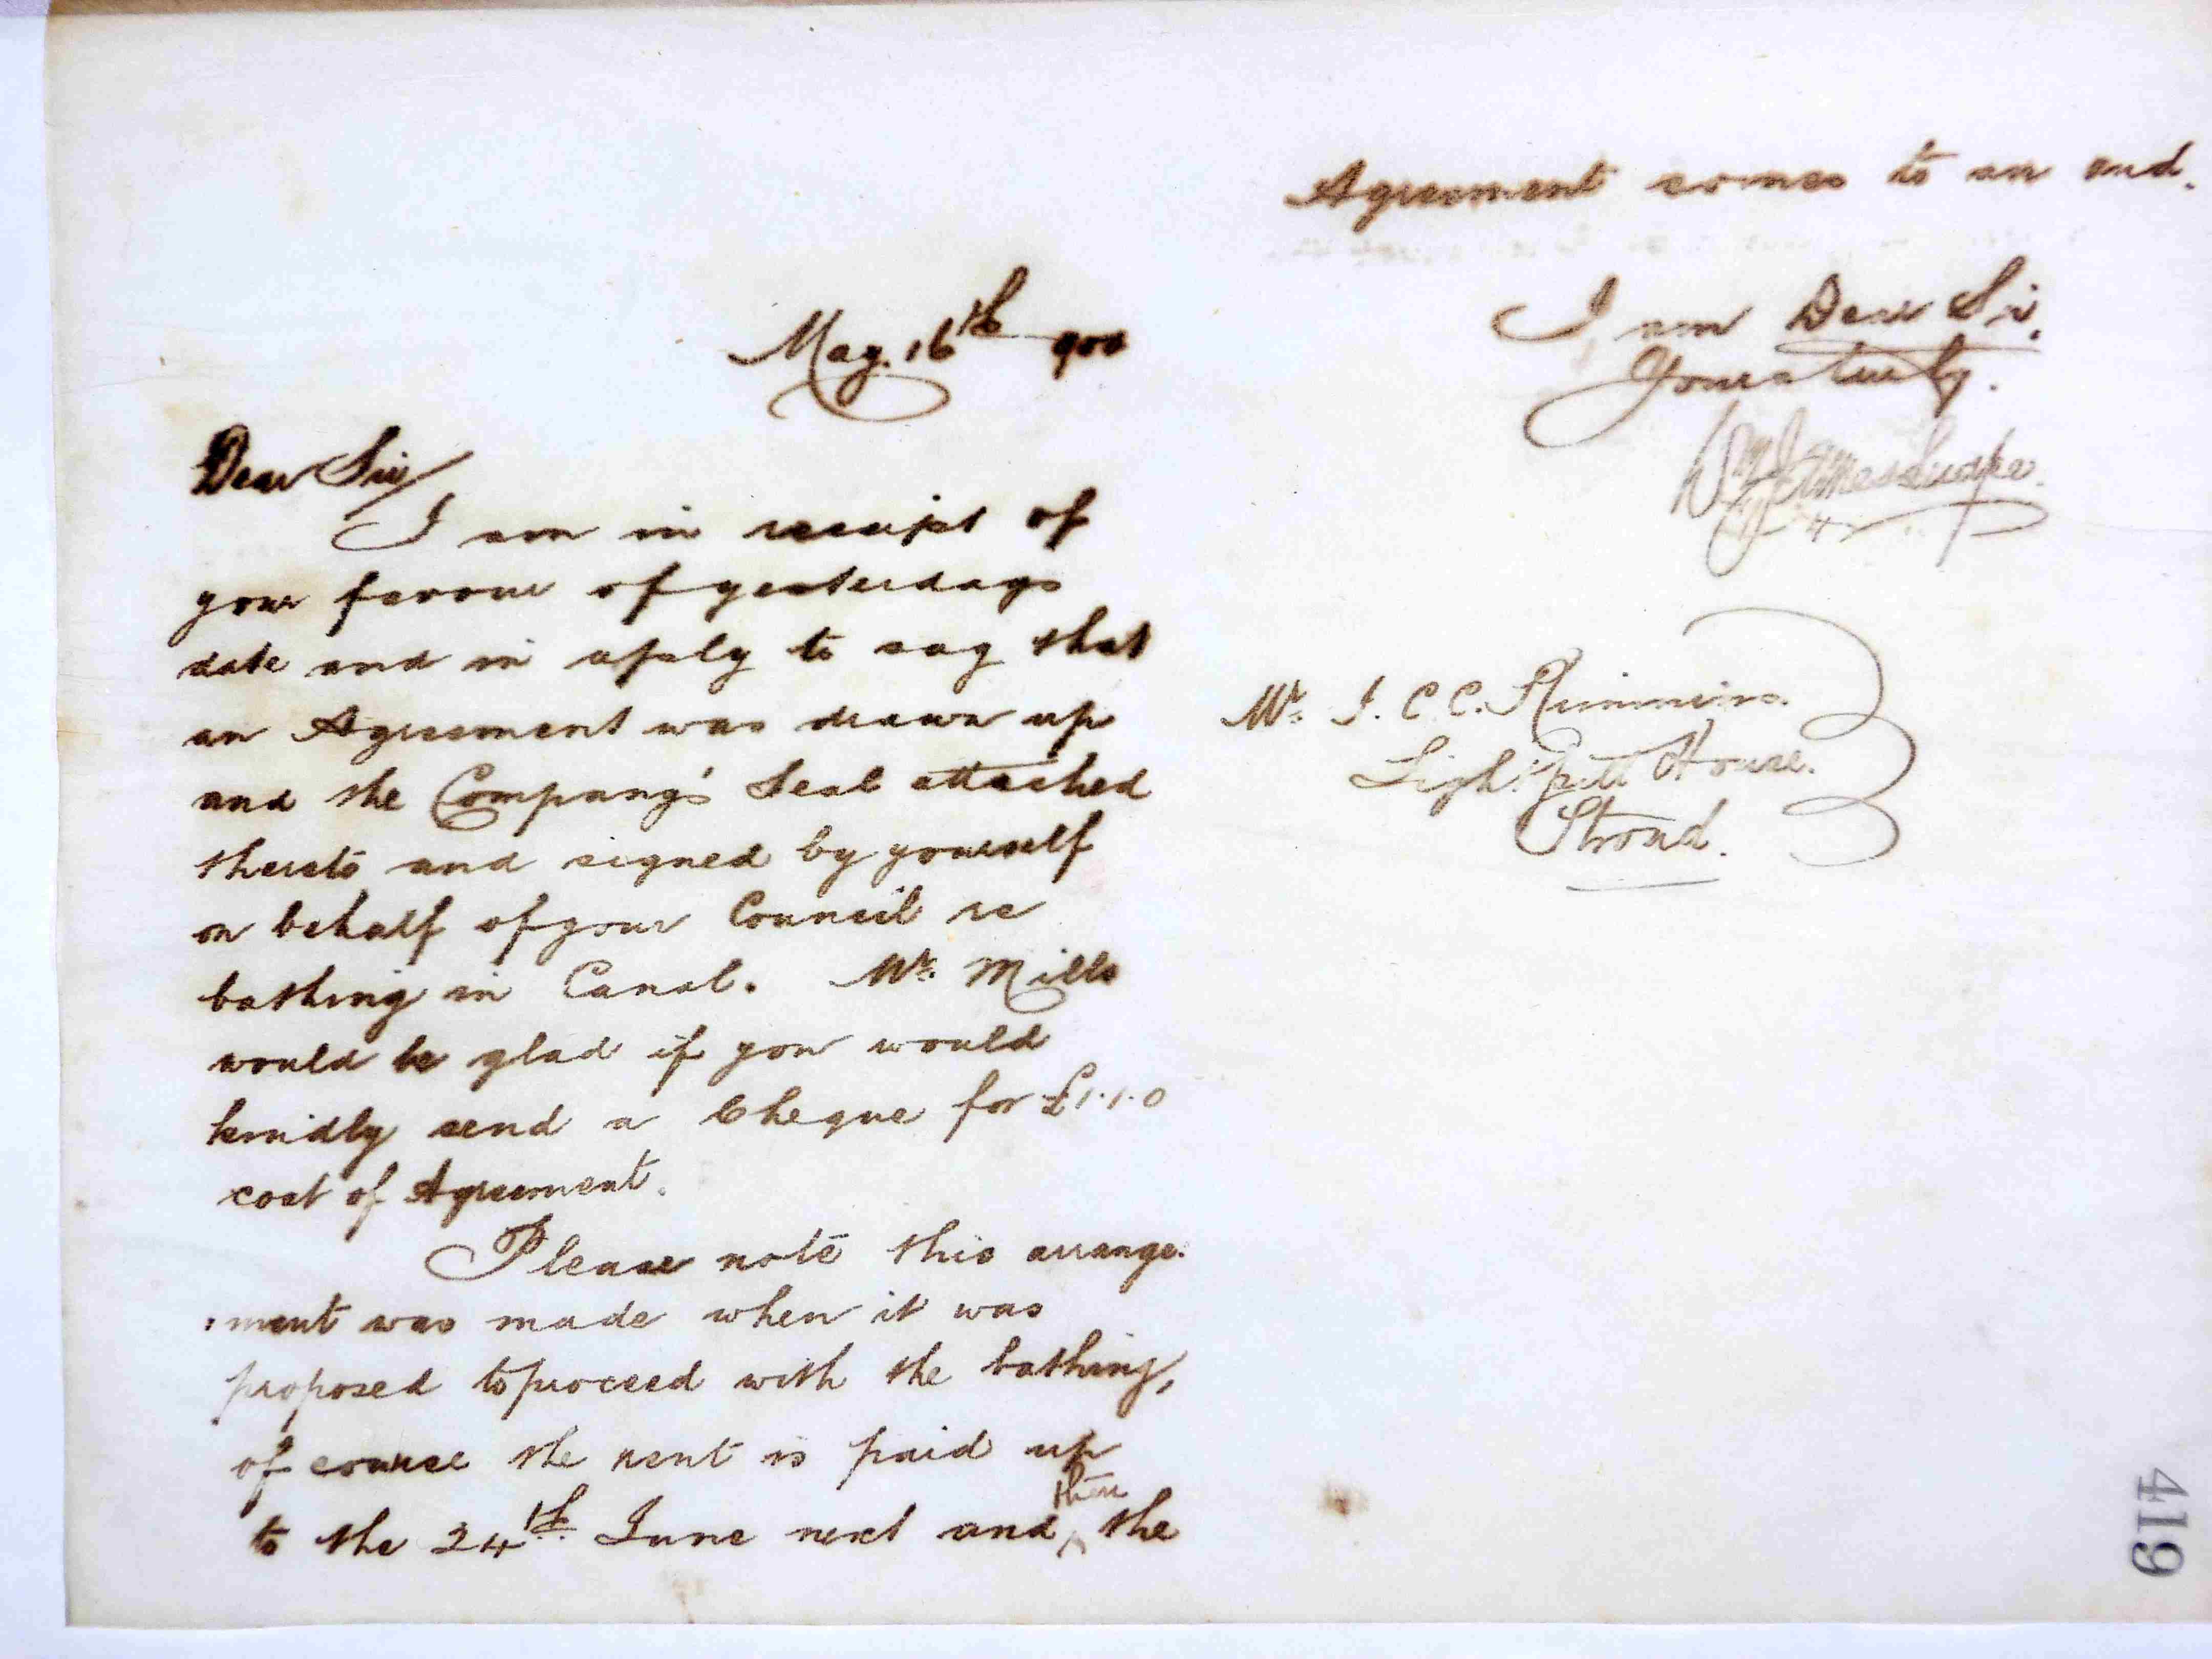 May. 16th 900
Dear Sir/
I am in receipt of
your favour of yesterdays
date and in reply to say that
an Agreement was drawn up
and the Company's Seal attached
thereto and signed by yourself
on behalf of your Council re
bathing in Canal. Mr. Mills
would be glad if you would
kindly send a Cheque for £1.1.0
cost of Agreement.
Please note this arrange-
:ment was made when it was
proposed to proceed with the bathing,
of course the rent is paid up
to the 24th. June next and then the
Agreement comes to an end.
I am Dear Sir.
Yours truly.
Wm James Snape.
Mr. J. C. C.
Lightpill House.
Stroud.
419